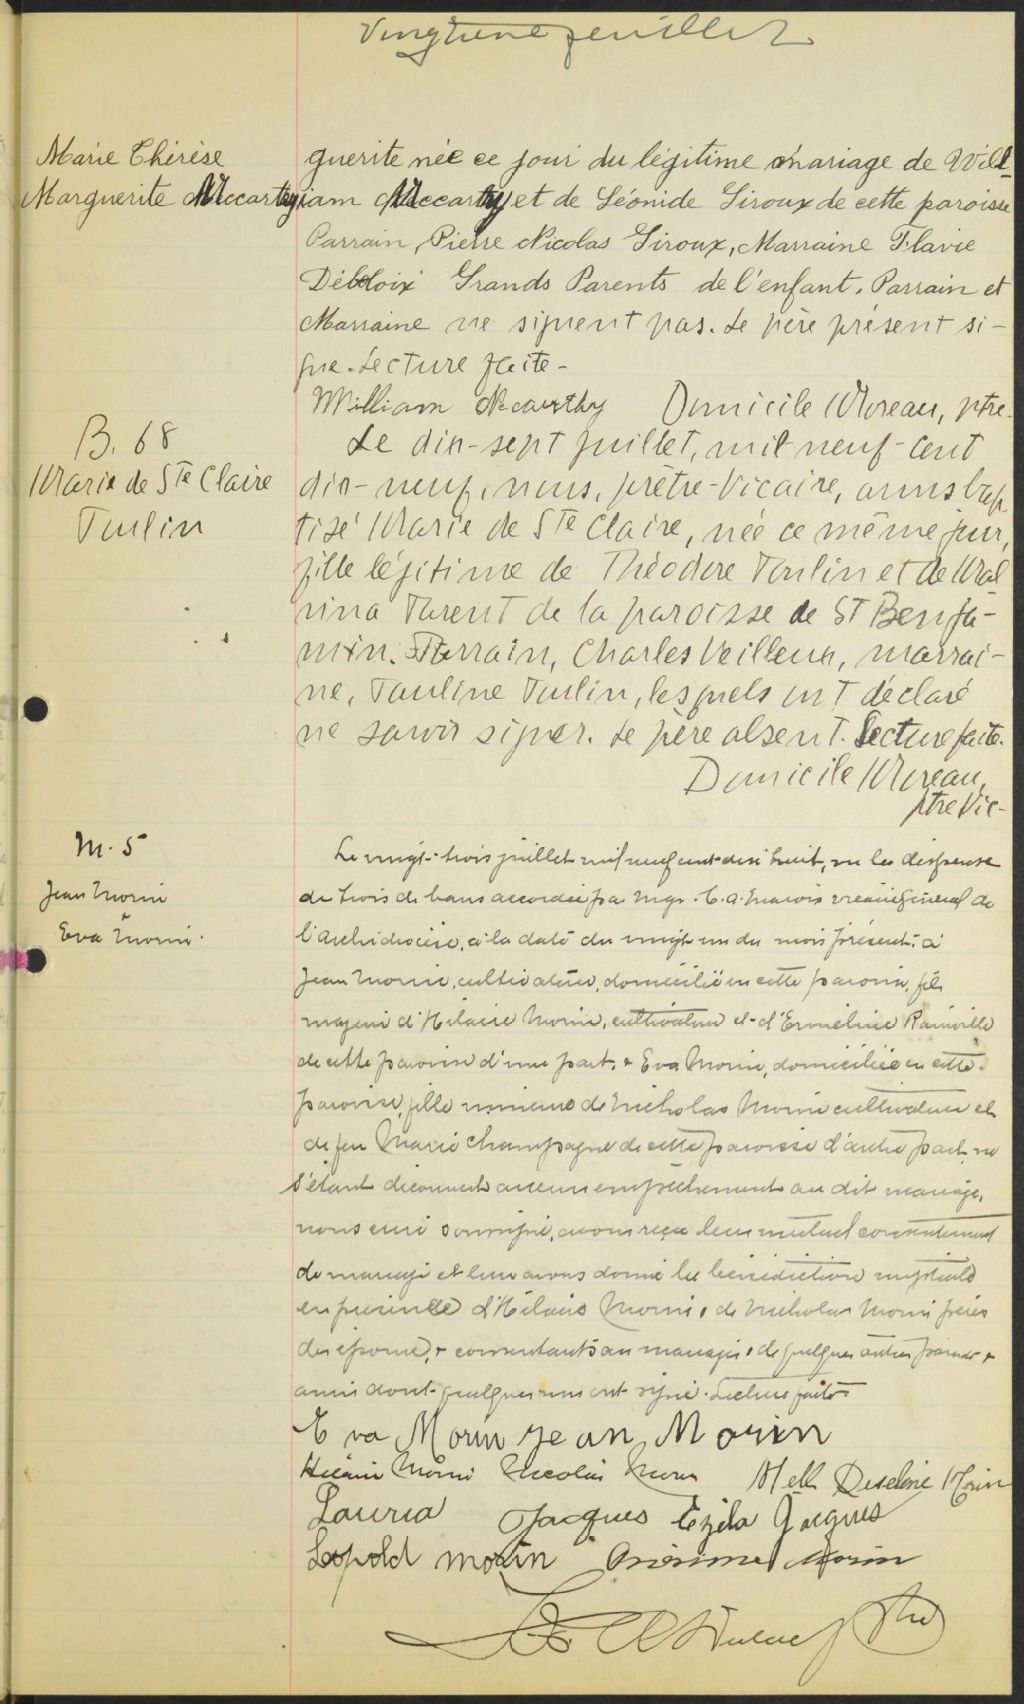 Vingtième feuillet
Marie Thérèse
Marguerite Mccarthy
guerite née ce jour du légitime mariage de Will-
iam Mccarthy et de Léonide Giroux de cette paroisse
Parrain, Pierre Nicolas Giroux, Marraine Flavie
Débloix Grands Parents de l'enfant. Parrain et
Marraine ne signent pas. Le père présent si-
gne. Lecture faite -
William Mccarthy Domicile Moreau, ptre.
B. 68
Marie de Ste Claire
Poulin
Le dix-sept juillet, mil-neuf-cent
dix-neuf, nous, prêtre-Vicaire, avons bap
tisé Marie de Ste Claire, née ce même jour,
fille légitime de Théodore Poulin et de Mal
vina Parent de la paroisse de St Benja-
min. Parrain, Charles Veilleux, marrai-
ne, Pauline Poulin, lesquels ont déclaré
ne savoir signer. Le père absent. Lecture faite.
Domicile Moreau,
ptre Vic-
M. 5
Jean Morin
Eva Morin.
Le vingt-trois juillet mil neuf cent dix huit, vu la dispense
de trois de bans accordée par Mgr. C. A. Marois vicaire général de
l'archidiocèse, à la date du vingt un du mois présent, à
Jean Morin, cultivateur, domicilié en cette paroisse, fils
majeur d'Hilaire Morin, cultivateur et d'Ermeline Rainville
de cette paroisse d'une part, & Eva Morin, domiciliée en cette
paroisse, fille mineure de Nicholas Morin cultivateur et
de feu Marie Champagne de cette paroisse d'autre part, ne
s'étant découvert aucun empêchement au dit mariage,
nous curé soussigné, avons reçu leur mutuel consentement
de mariage et leur avons donné la bénédiction nuptiale
en présence d'Hilaire Morin, de Nicholas Morin pères
des époux, & consentants au mariage & de quelques autres parents &
amis dont quelques uns ont signé. Lecture faite.
Eva Morin Jean Morin
Hilaire Morin Nicolas Morin Melle Morin
Lauria Jacques Ezila Jacques
Léopold Morin Onésime Morin
Ptre